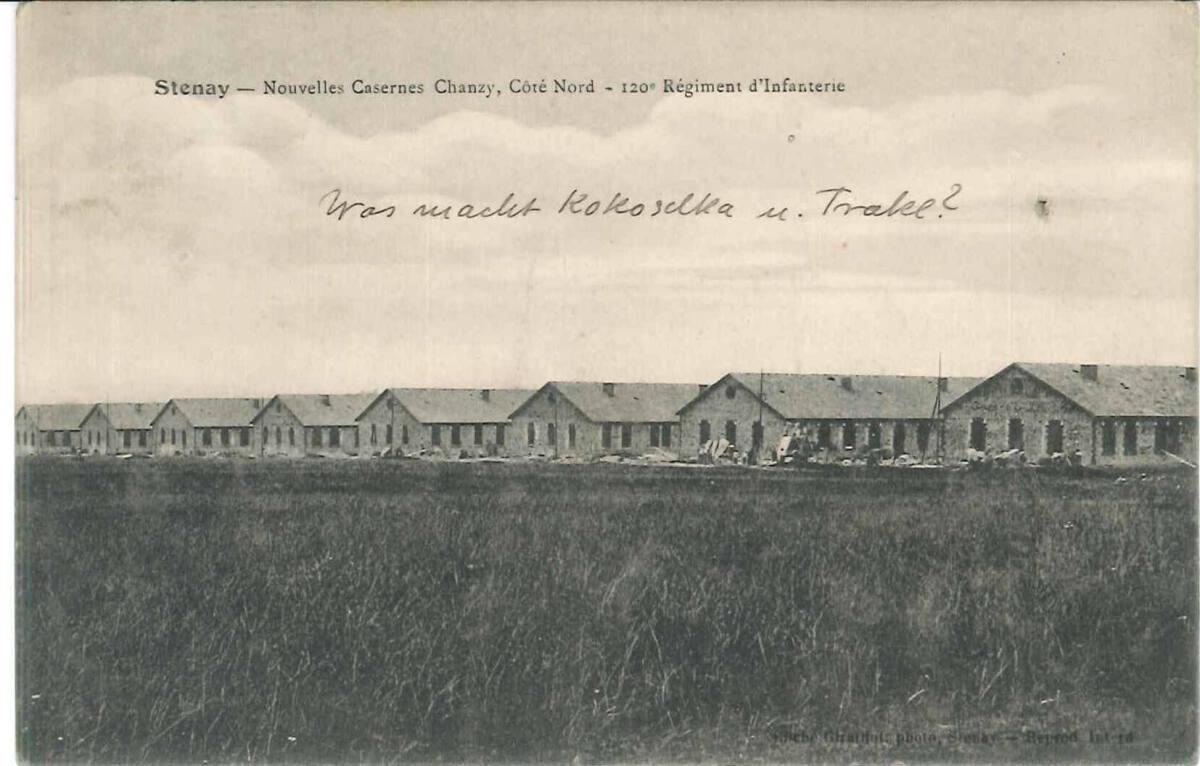 Stenay — Nouvelles Casernes Chanzy, Côté Nord - 120e Régiment d'Infanterie
Was macht Kokoschka u. Trakl?
Cliché Girardot, photo, Stenay — Reprod. Int-rd